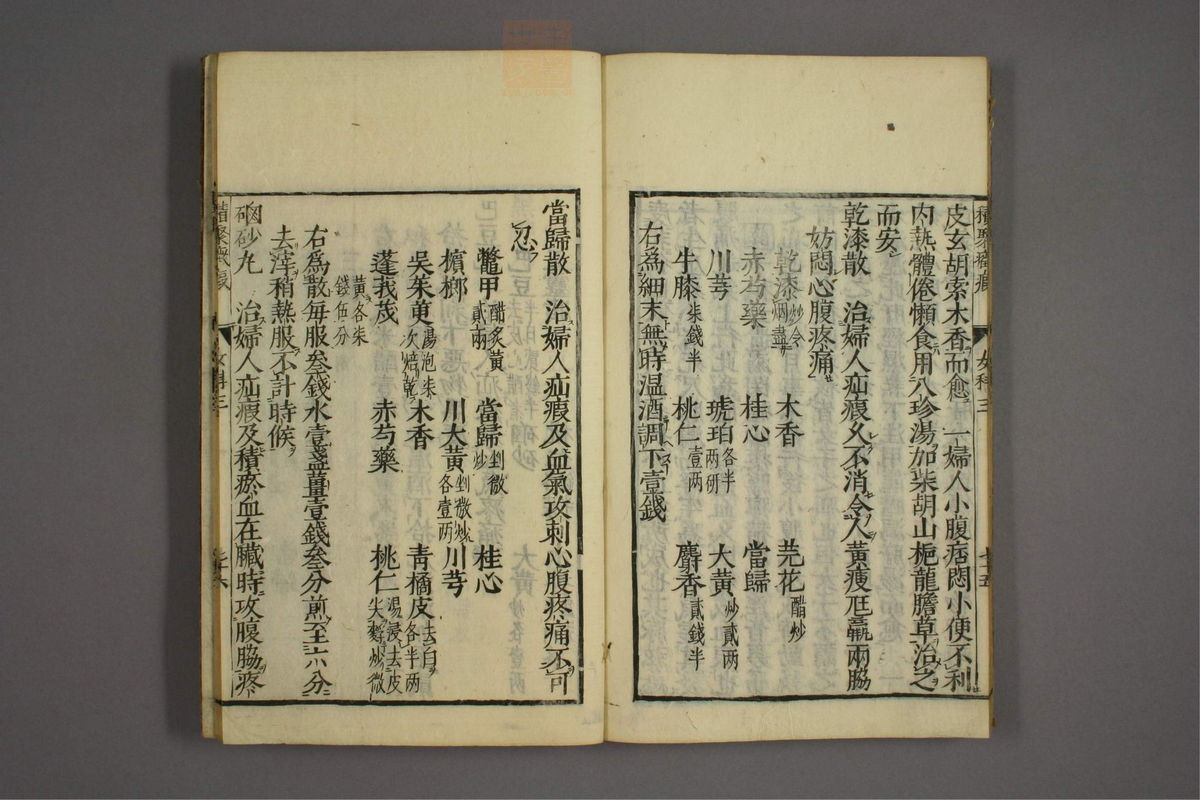 皮玄胡索木香而愈 一婦人小腹痞悶小便不利
内熱體倦懶食用八珍湯加柴胡山梔龍膽草治之
而安
乾漆散 治婦人疝瘕久不消令人黃瘦尫羸兩脇
妨悶心腹疼痛
乾漆炒令烟盡 木香 芫花醋炒
赤芍藥 桂心 當歸
川芎 琥珀各半两研 大黃炒貳两
牛膝柒錢半 桃仁壹两 麝香貳錢半
右為細末無時温酒調下壹錢
當歸散 治婦人疝瘕及血氣攻刺心腹疼痛不可
忍
鼈甲醋炙黃貳兩 當歸剉微炒 桂心
檳榔 川大黃剉微炒各壹两 川芎
吳茱萸湯泡柒次焙乾 木香 青橘皮去白各半两
蓬莪茂 赤芍藥 桃仁湯浸去皮尖麩炒微
黃各柒錢伍分
右為散每服叁錢水壹盞薑壹錢叁分煎至六分
去滓稍熱服不計時候
硇砂丸 治婦人疝瘕及積瘀血在臟時攻腹脇疼
女科三